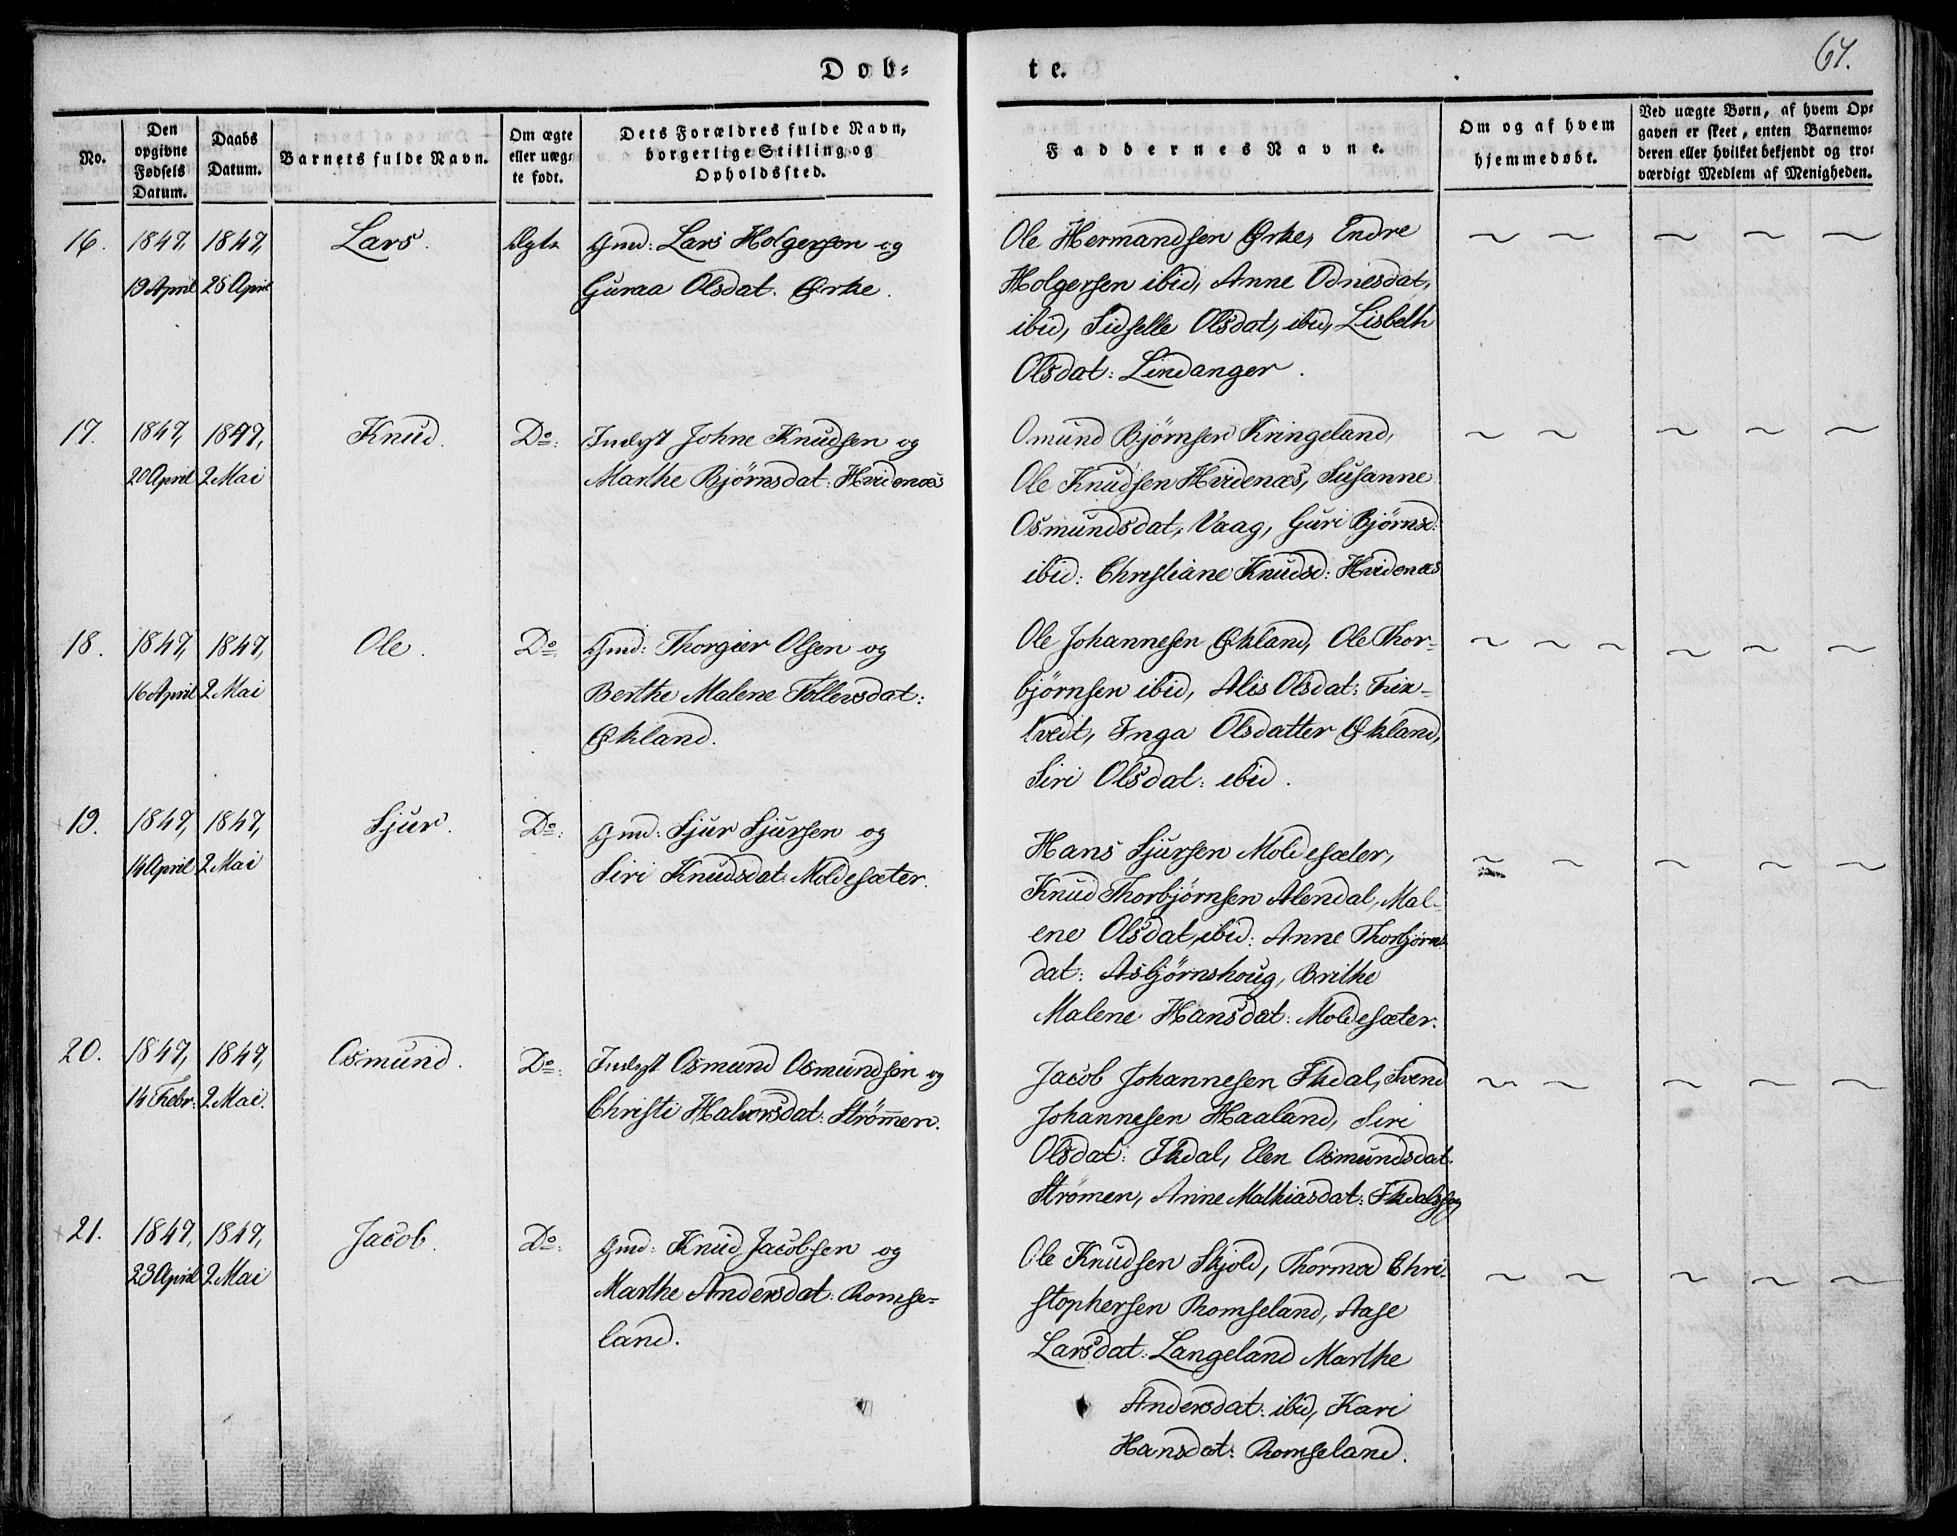 Døb-
te.
67.
No.
Den opgivne Fødsels Datum.
Daabs Datum.
Barnets fulde Navn.
Om ægte eller uægte født.
Dets Forældres fulde Navn, borgerlige Stilling og Opholdssted.
Faddernes Navne.
Om og af hvem hjemmedøbt.
Ved uægte Børn, af hvem Opgaven er skeet, enten Barnemoderen eller hvilket bekjendt og troværdigt Medlem af Menigheden.
16. 1847, 1847, Lars. Ægte
19 April 25 April
Gmd: Lars Holgersen og
Guraa Olsdat. Ørke.
Ole Hermandsen Ørke, Endre
Holgersen ibid, Anne Odnesdat,
ibid, Sidselle Olsdat, ibid, Lisbeth
Olsdat: Lindanger.
17. 1847, 1847, Knud. Do:
20 April 2 Mai
Indgst Johne Knudsen og
Marthe Bjørnsdat: Hvidenæs
Omund Bjørnsen Kringeland,
Ole Knudsen Hvidenæs, Susanne
Osmundsdat, Vaag, Guri Bjørnsd:
ibid: Christiane Knudsd: Hvidenæs
18. 1847, 1847, Ole. Do:
16 April 2 Mai
Gmd: Thorgier Olsen og
Berthe Malene Tollevsdat:
Økland.
Ole Johannesen Økland, Ole Thor-
bjørnsen ibid, Alis Olsdat:
tvedt, Inga Olsdatter Økland,
Siri Olsdat: ibid.
19. 1847, 1847, Sjur. Do:
14 April 2 Mai
Gmd: Sjur Sjursen og
Siri Knudsdat: Moldesæter.
Hans Sjursen Moldesæter,
Knud Thorbjørnsen Alendal, Mal-
ene Olsdat, ibid: Anne Thorbjørns
dat: Asbjørnshoug, Brithe
Malene Hansdat: Moldesæter.
20. 1847, 1847, Osmund. Do:
14 Febr: 2 Mai.
Indgst Osmund Osmundsen og
Christi Halvorsdat: Strømmen.
Jacob Johannesen Ikdal, Svend
Johannesen Haaland, Siri
Olsdat: Ikdal, Elen Osmundsdat.
Strømen, Anne Mathiasdat:
21. 1847, 1847, Jacob. Do:
23 April 2 Mai
Gmd: Knud Jacobsen og
Marthe Andersdat: Romse-
land.
Ole Knudsen Skjold, Thormod Chri-
stophersen Romseland, Aase
Larsdat: Langeland Marthe
Andersdat: ibid, Kari
Hansdat: Romseland.